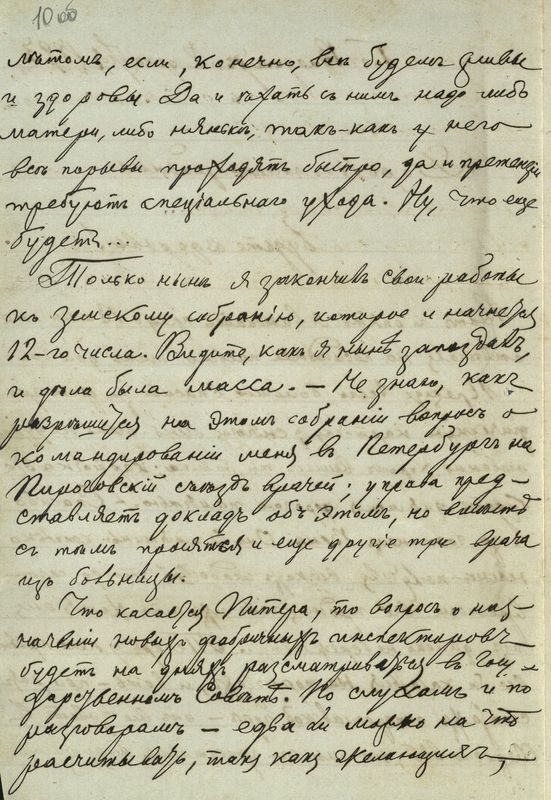 10 об
лѣтомъ, если, конечно, всѣ будемъ живы
и здоровы. Да и ѣхать съ нимъ надо либо
матери, либо нянькѣ, такъ-какъ у него
всѣ порывы проходятъ быстро, да и претензіи
требуютъ спеціальнаго ухода. Ну, что еще
будетъ...
Только нынѣ я закончивъ свои работы
къ земскому собранію, которое и начнется
12-го числа. Видите, какъ я нынѣ запоздавъ,
и дѣла была масса. – Не знаю, какъ
разрѣшится на этомъ собраніи вопросъ о
командированіи меня въ Петербургъ на
Пироговскій съѣздъ врачей; управа пред-
ставляетъ докладъ объ этомъ, но вмѣстѣ
съ тѣмъ просятся и еще другіе три врача
изъ больницы.
Что касается Питера, то вопросъ о наз-
наченіи новыхъ фабричныхъ инспекторовъ
будетъ на дняхъ разсматриваться въ Госу-
дарственномъ Совѣтѣ. По слухамъ и по
разговорамъ – едва ли можно на что
расчитывать, такъ какъ желающихъ,